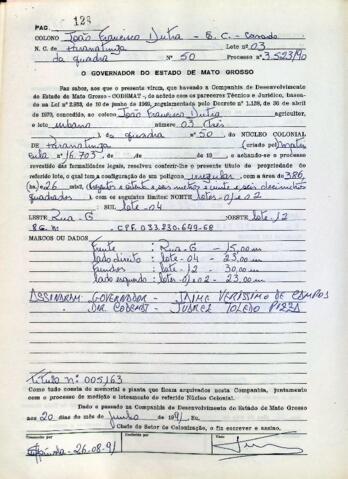 PAG. 128
COLONO João Francisco Dutra - B. C. - Casado
N. C. de Paranatinga Lote nº 03
da quadra Nº 50 Processo nº 3.523/90
O GOVERNADOR DO ESTADO DE MATO GROSSO
Faz saber, aos que o presente virem, que havendo a Companhia de Desenvolvimento
do Estado de Mato Grosso - CODEMAT -, de acórdo com os pareceres Técnico e Jurídico, baseado
na Lei nº 2.933, de 10 de junho de 1969, regulamentada pelo Decreto nº 1.138, de 30 de abril
de 1970, concedido, ao colono João Francisco Dutra agricultor,
o lote urbano número 03 (três
) da quadra nº 50 DO NÚCLEO COLONIAL
DE Paranatinga (criado pe Matrí
cula nº 16.705 , de de 19 , e achando-se o processo
revestido das formalidades legais, resolveu conferir-lhe o presente título de propriedade do
referido lote, o qual tem a configuração de um polígono irregular com a área de 386,
26 m2 (trezentos e oitenta e seis metros e vinte e seis decímetros
quadrados ) com os seguintes limites: NORTE lotes-01/02
SUL lote-04
LESTE Rua-G OESTE lote-12
CPF. 033.230.649-68
MARCOS OU DADOS
Frente : Rua-G - 15,00 m
lado direito : lote-04 - 23,00 m
Fundos : lote-12 - 30,00 m
lado esquerdo : lotes-01/02 - 23,00 m
ASSINARAM: GOVERNADOR - JAIME VERÍSSIMO DE CAMPOS
DIR. CODEMAT - JUAREZ TOLEDO PIZZA
Titulo nº 005163
Como tudo consta do memorial e planta que ficam arquivados nesta Companhia, juntamente
com o processo de medição e loteamento do referido Núcleo Colonial.
Dado e passado na Companhia de Desenvolvimento do Estado de Mato Grosso
aos 20 dias do mês de junho de 1991. Eu,
Chefe do Setor de Colonização, o fiz escrever e assino.
26-08-91
Visto